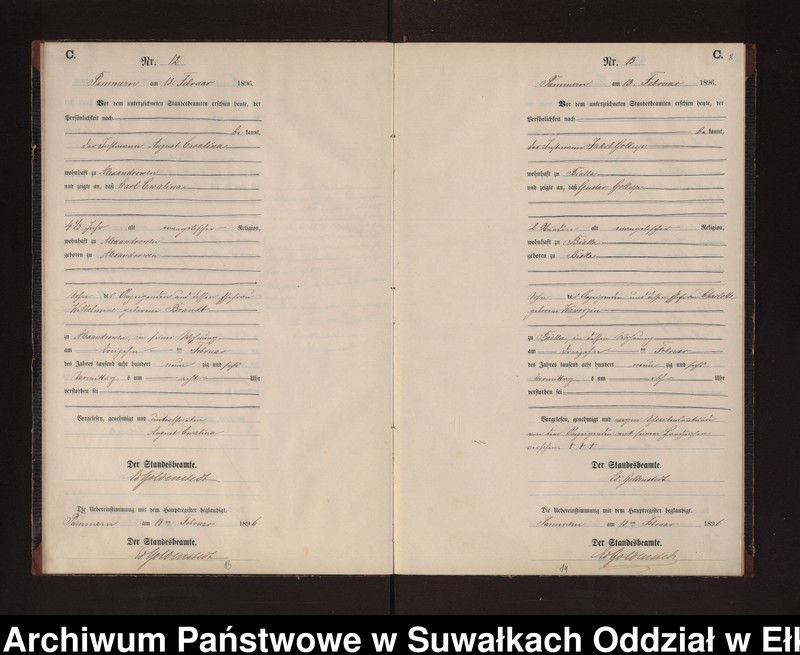 C.
Nr. 12
Sammern am 13. Februar 1896.
Vor dem unterzeichneten Standesbeamten erschien heute, der
Persönlichkeit nach
be kannt,
der Instmann August Cwalina
wohnhaft zu Alexandrowen
und zeigte an, daß Carl Cwalina
4 1/2 Jahr alt evangelischer Religion,
wohnhaft zu Alexandrowen
geboren zu Alexandrowen
Sohn des Anzeigenden und dessen Ehefrau
Wilhelmine geborene Brandt
zu Alexandrowen, in seiner Wohnung
am dreizehnten Februar
des Jahres tausend acht hundert neunzig und sechs
Vormittag s um acht Uhr
verstorben sei
Vorgelesen, genehmigt und unterschrieben
August Cwalina
Der Standesbeamte.
Goldenstedt
Die Uebereinstimmung mit dem Hauptregister beglaubigt.
Sammern am 13ten Februar 1896
Der Standesbeamte.
Goldenstedt
13
C. 8
Nr. 13
Sammern am 13. Februar 1896.
Vor dem unterzeichneten Standesbeamten erschien heute, der
Persönlichkeit nach
be kannt,
der Instmann Jakob Gollup
wohnhaft zu Bialla
und zeigte an, daß Gustav Gollup
2 Stunden alt evangelischer Religion,
wohnhaft zu Bialla
geboren zu Bialla
Sohn des Anzeigenden und dessen Ehefrau Charlotte
geborene
zu Bialla, in dessen Wohnung
am dreizehnten Februar
des Jahres tausend acht hundert neunzig und sechs
Vormittag s um elf Uhr
verstorben sei
Vorgelesen, genehmigt und wegen Schreibensunkunde
von dem Anzeigenden mit seinem Handzeichen
versehen + + +
Der Standesbeamte.
Goldenstedt
Die Uebereinstimmung mit dem Hauptregister beglaubigt.
Sammern am 13ten Februar 1896
Der Standesbeamte.
Goldenstedt
14
Archiwum Państwowe w Suwałkach Oddział w Ełk